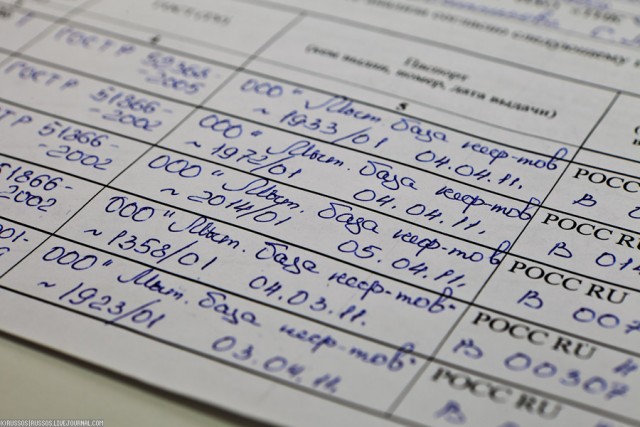 Паспорт
(кем выдан, номер, дата выдачи)
5
ГОСТ Р 52368-
-2005
ООО "Мыт. база неф-тов
~ 1933/01 04.04.11.
РОСС
В
ГОСТ Р 51866-
-2002
ООО "Мыт. база неф-тов
~ 1972/01 04.04.11.
РОСС RU
В 01
ГОСТ Р 51866-
-2002
ООО "Мыт. база неф-тов
~ 2014/01 05.04.11.
РОСС RU
В 007
51866-
-2002
ООО "Мыт. база неф-тов-
~ 1358/01 04.03.11.
РОСС RU
В 00307
ООО "Мыт. база неф-тов-
~ 1923/01 03.04.11.
РОСС RU
В
(C)RUSSOS(RUSSOS.LIVEJOURNAL.COM)